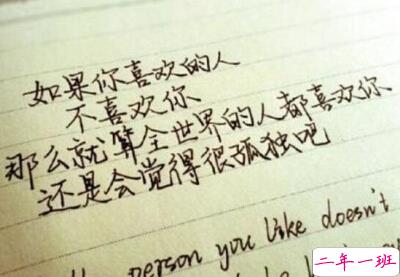 如果你喜欢的人
不喜欢你
那么就算全世界的人都喜欢你
还是会觉得很孤独吧
person you like doesn't
二年一班